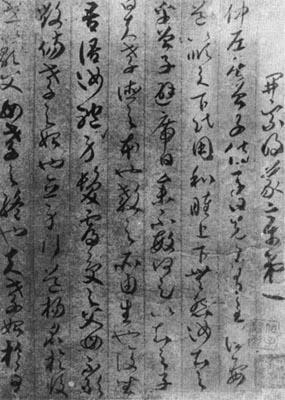 開宗明義章第一
仲尼居曾子侍子曰先王有至德要
道以順天下民用和睦上下無怨汝知之
乎曾子避席曰參不敏何足以知之子
曰夫孝德之本也教之所由生也復坐
吾語汝身體髮膚受之父母不敢
毀傷孝之始也立身行道揚名於後
世以顯父母孝之終也夫孝始於事